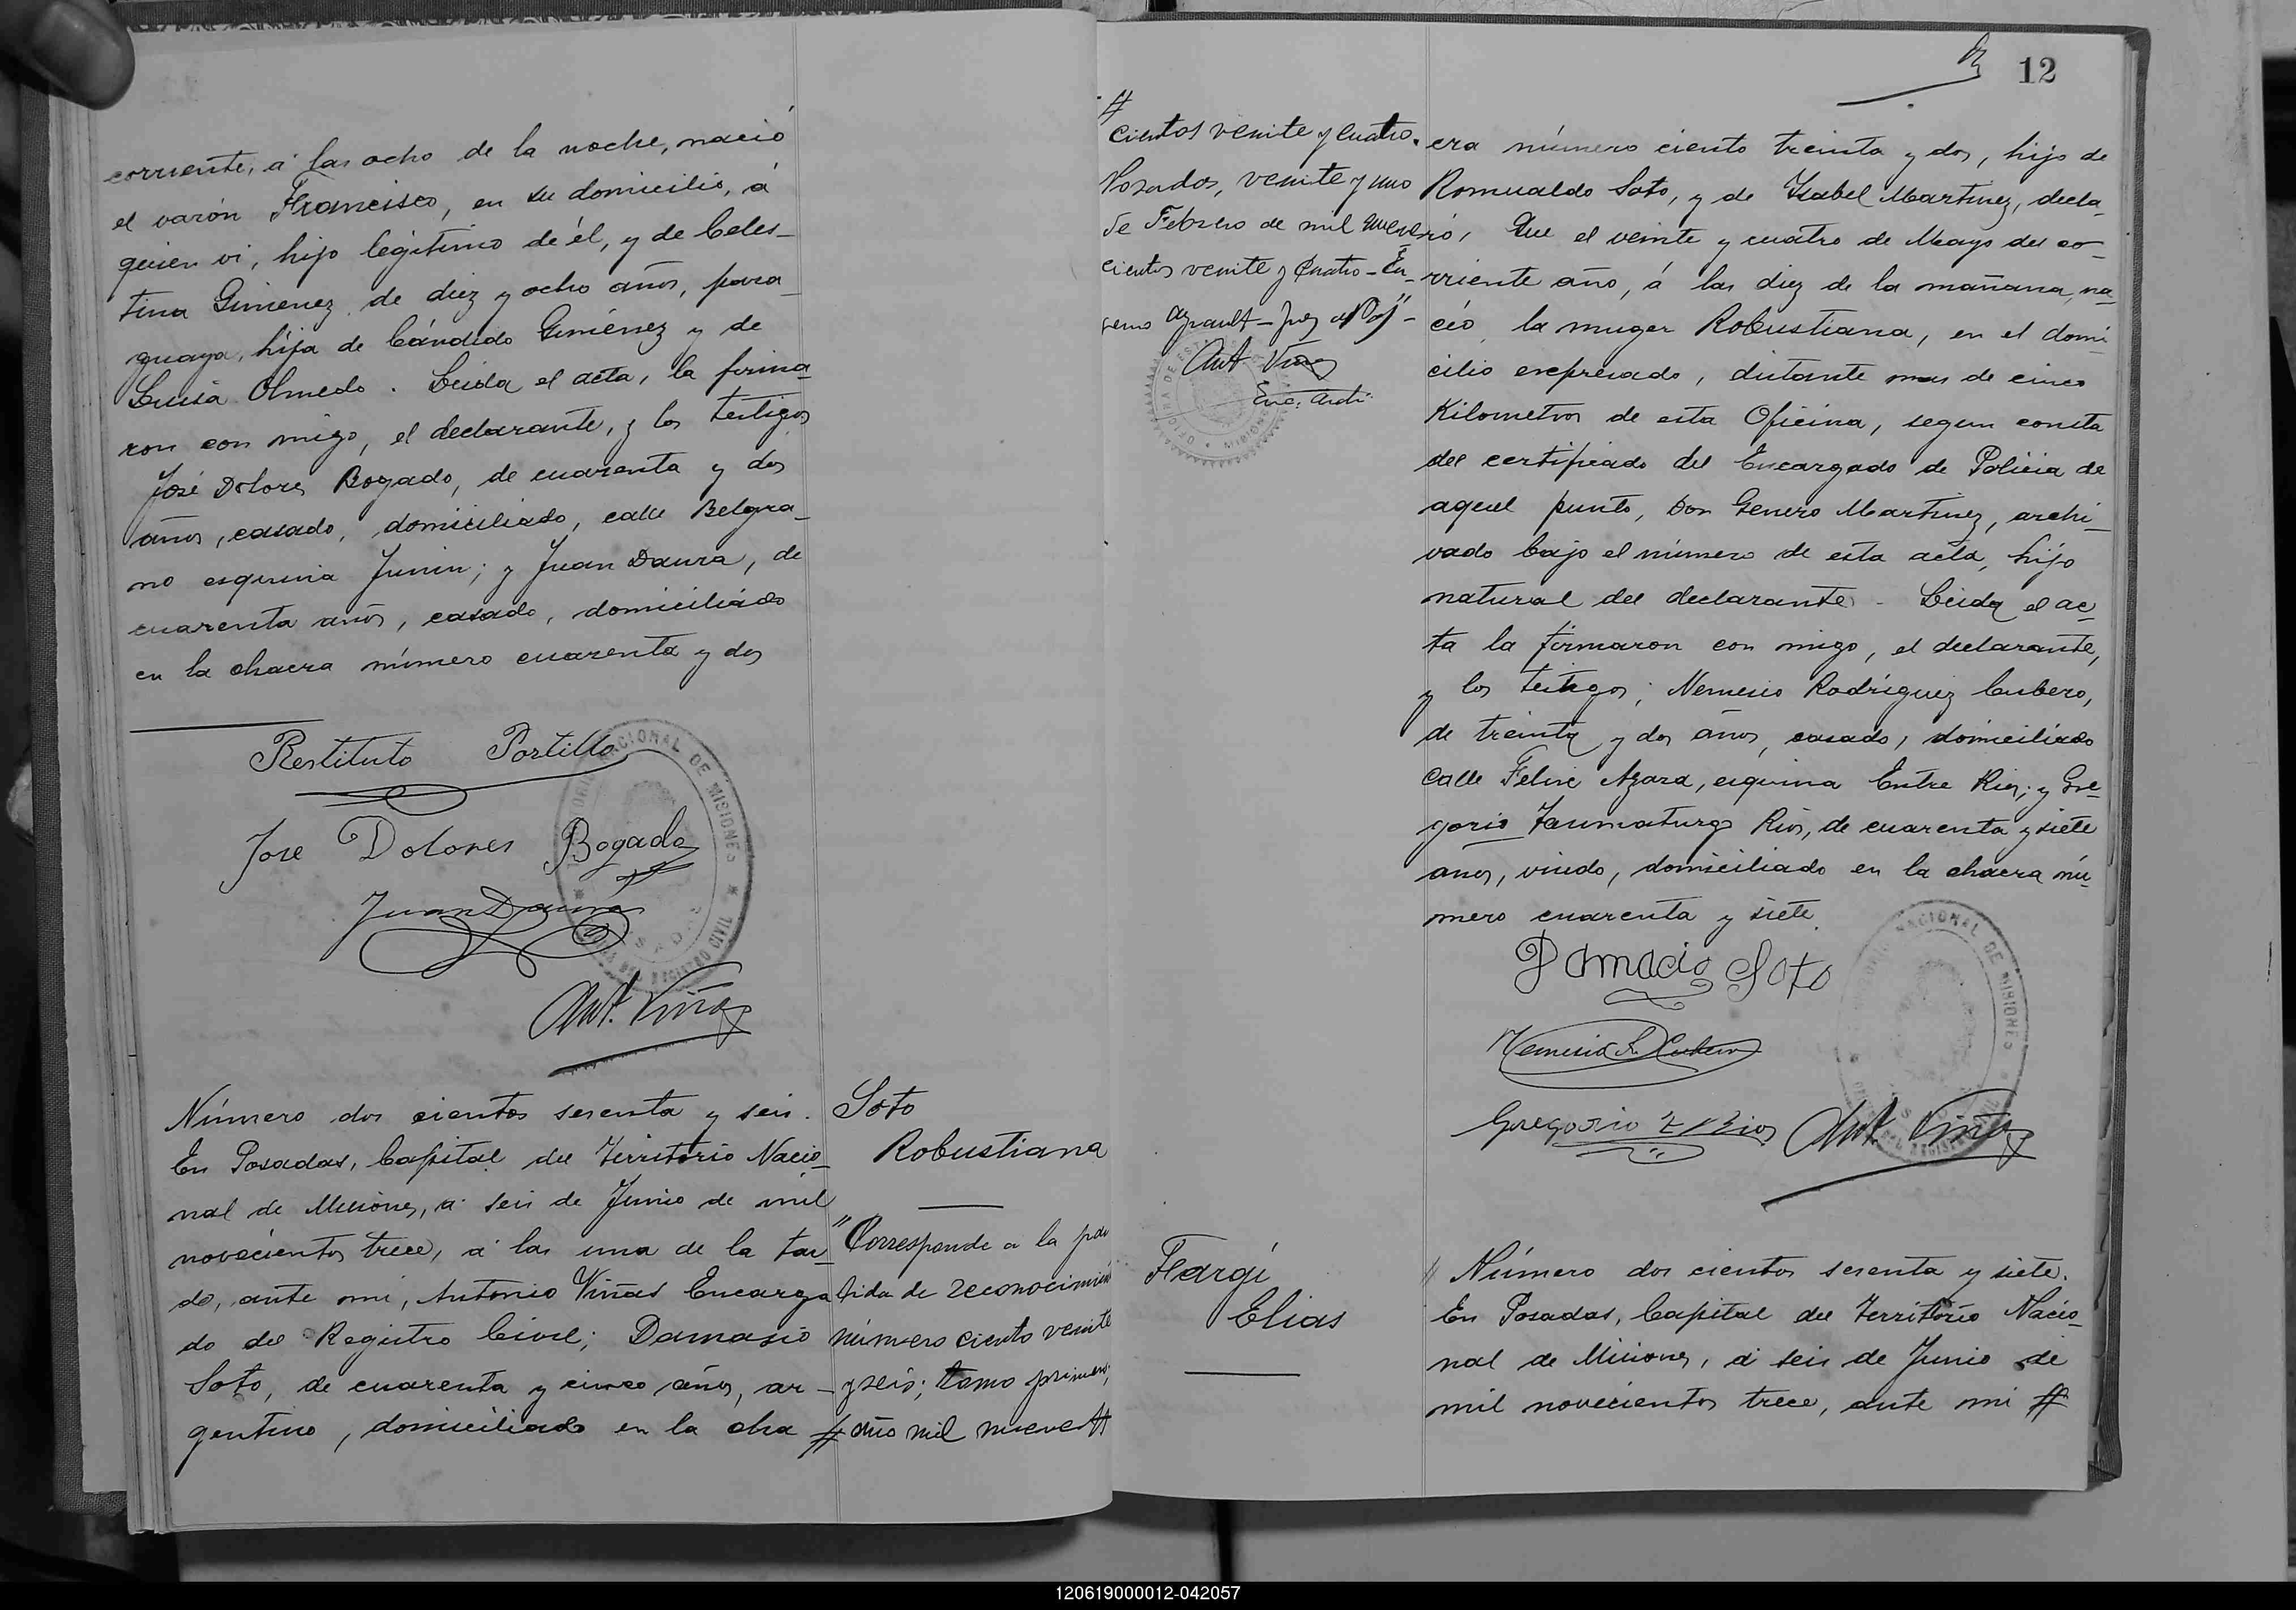 corriente, á las ocho de la noche, nació
el varón Francisco, en su domicilio, á
quien vi, hijo legítimo de él, y de Celes-
tina Gimenez, de diez y ocho años, para-
guaya, hija de Cándido Giménez y de
Luisa Olmedo. Leida el acta, la firma-
ron con migo, el declarante, y los testigos
José Dolores Bogado, de cuarenta y dos
años, casado, domiciliado, calle Belgra-
no esquina Junin; y Juan Daura, de
cuarenta años, casado, domiciliado
en la chacra número cuarenta y dos
Restituto Portillo
Jose Dolores Bogado
Juan Daura
Ant. Viñas
Número dos cientos sesenta y seis.
En Posadas, Capital del Territorio Nacio-
nal de Misiones, á seis de Junio de mil
novecientos trece, á las una de la tar-
de, ante mi, Antonio Viñas Encarga
do del Registro Civil; Damasio
Soto, de cuarenta y cinco años, ar-
gentino, domiciliado en la cha
Soto
Robustiana
"Corresponde a la par
tida de reconocimien
número ciento veinte
y seis; tomo primero,
# año mil nueve #
12
#
cientos veinte y cuatro.
Posadas, veinte y uno
de Febrero de mil nueve
cientos veinte y cuatro - Eu-
genio
Ant Viñas
Enc.
cra número ciento treinta y dos, hijo de
Romualdo Soto, y de Isabel Martinez, decla-
ró, Que el veinte y cuatro de Mayo del co-
rriente año, á las diez de la mañana, na-
ció, la muger Robustiana, en el domi
cilio expresado, distante mas de cinco
Kilometros de esta Oficina, segun consta
del certificado del Encargado de Policia de
aquel punto, Don Genero Martinez, archi-
vado bajo el número de esta acta, hijo
natural del declarante - Leida el ac-
ta la firmaron con migo, el declarante,
y los testigos; Nemesio Rodriguez Cubero,
de treinta y dos años, casado, domiciliado
Calle Felix Azara, esquina Entre Rios; y Gre-
gorio Taumaturgo Rios, de cuarenta y siete
años, viudo, domiciliado en la chacra nú-
mero cuarenta y siete.
Damacio Soto
Nemesio R. Cubero
Gregorio T Rios
Ant Viñas
Fargi
Elias
Número dos cientos sesenta y siete.
En Posadas, Capital del Territorio Nacio-
nal de Misiones, á seis de Junio de
mil novecientos trece, ante mi #
120619000012-042057